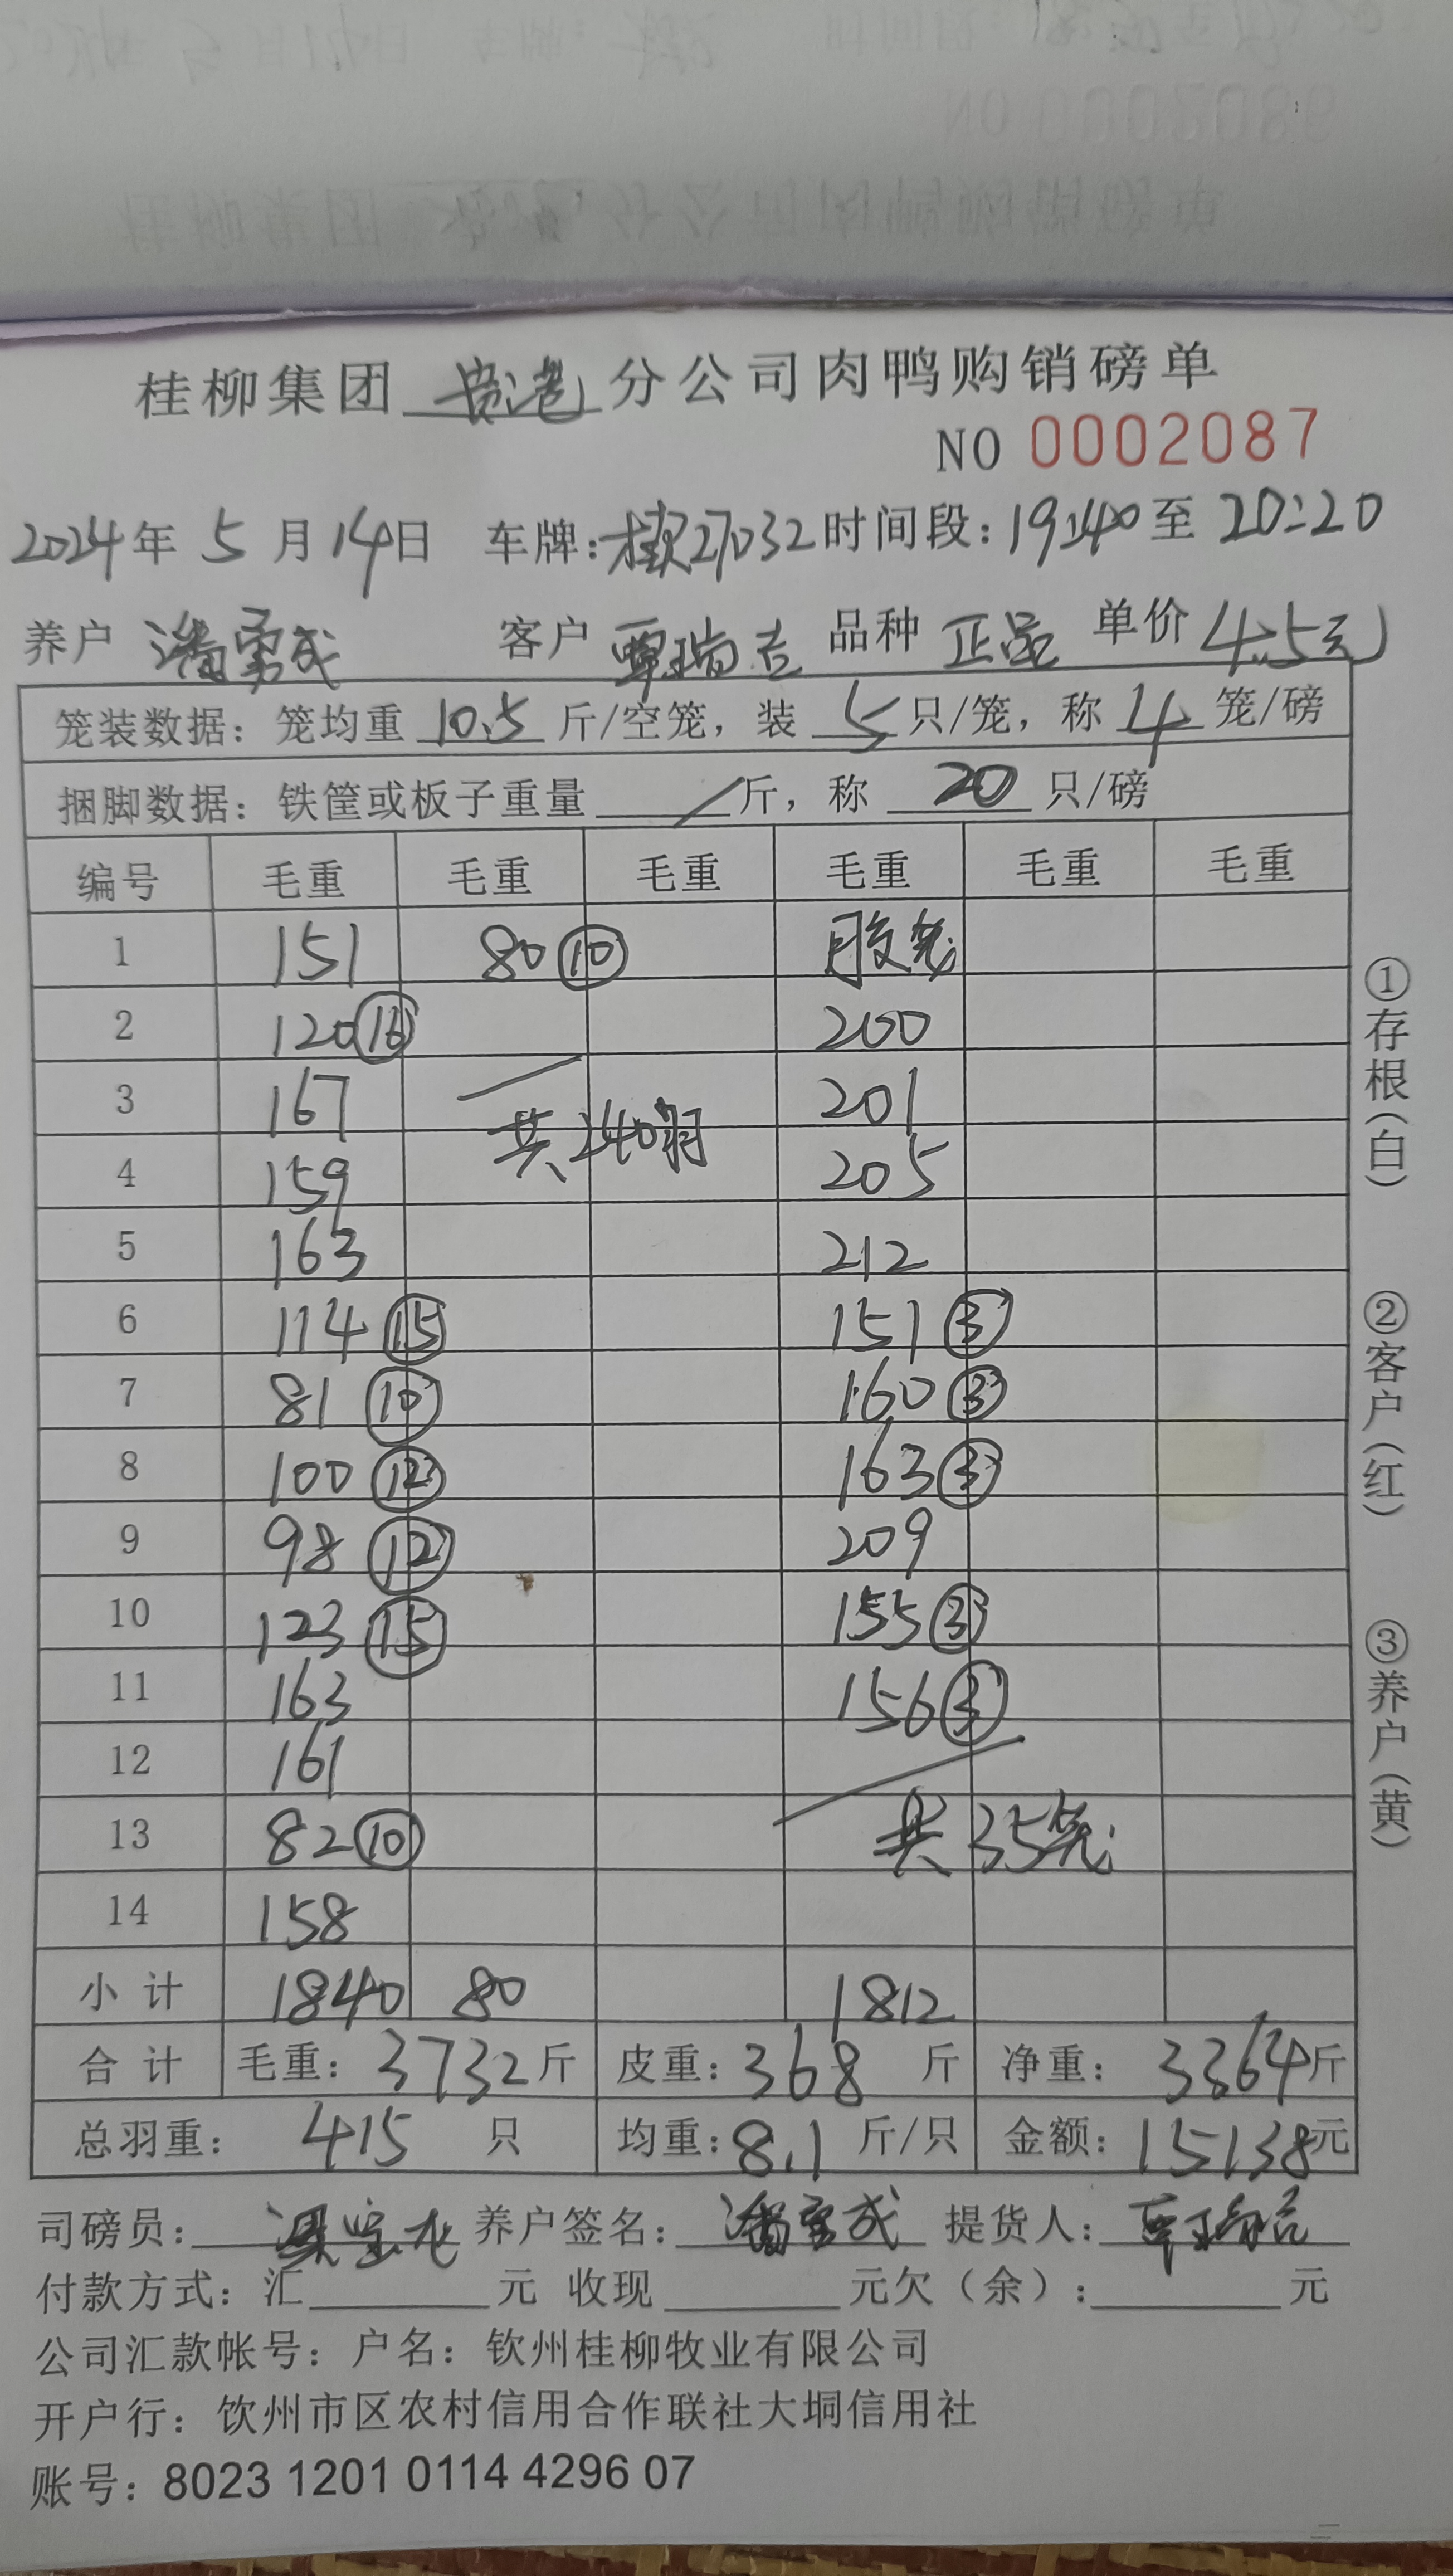 桂柳集团 贵港 分公司肉鸭购销磅单
NO 0002087
2024年 5 月 14日 车牌:桂R27032 时间段:19:40 至 20:20
养户 潘勇成 客户 覃瑞吉 品种 正品 单价 4.5元
笼装数据: 笼均重 10.5 斤/空笼, 装 5 只/笼, 称 4 笼/磅
捆脚数据: 铁筐或板子重量 / 斤, 称 20 只/磅
编号 毛重 毛重 毛重 毛重 毛重 毛重
1 151 80 ⑩ 胶笼
2 120 ⑯ 200
3 167 201
共240羽
4 159 205
5 163 212
6 114 ⑮ 151 ③
7 81 ⑩ 160 ③
8 100 ⑫ 163 ③
9 98 ⑫ 209
10 123 ⑮ 155 ③
11 163 156 ③
12 161
13 82 ⑩ 共35笼
14 158
小计 1840 80 1812
合计 毛重: 3732 斤 皮重: 368 斤 净重: 3364 斤
总羽重: 415 只 均重: 8.1 斤/只 金额: 15138元
司磅员: 养户签名: 潘勇成 提货人: 覃瑞吉
付款方式: 汇 元 收现 元欠(余): 元
公司汇款帐号: 户名: 钦州桂柳牧业有限公司
开户行: 钦州市区农村信用合作联社大垌信用社
账号: 8023 1201 0114 4296 07
①存根(白)
②客户(红)
③养户(黄)